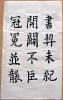 書契未紀
開闢不臣
冠冕並襲